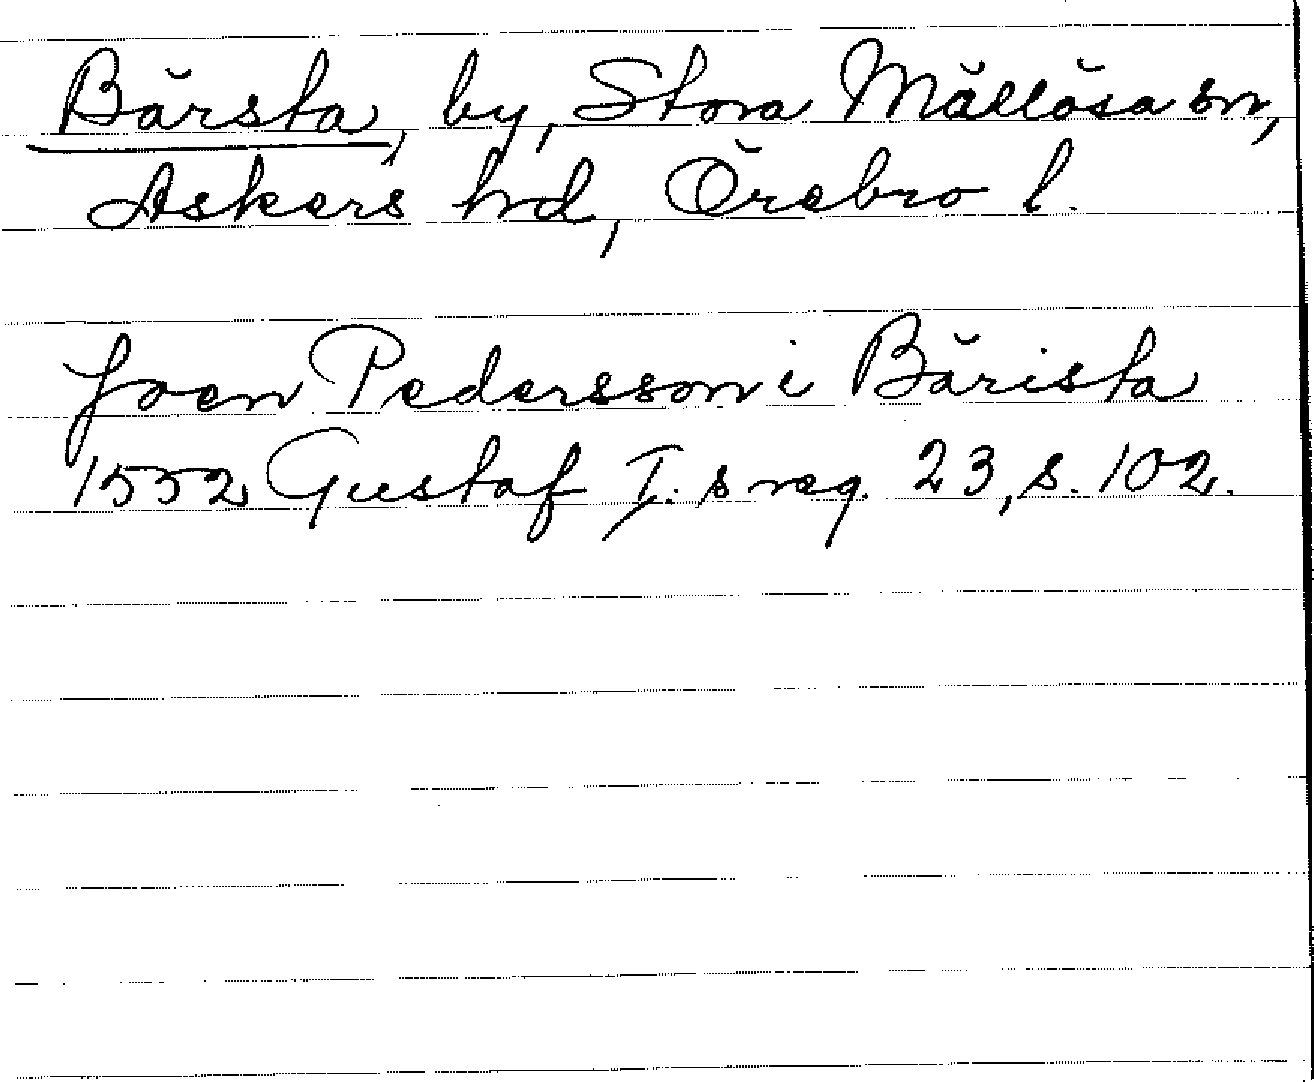 Bärsta, by, Stora Mällösa sn,
Askers hd, Örebro l.
Joen Pedersson i Bärista
1552 Gustaf I. s reg. 23, s. 102.